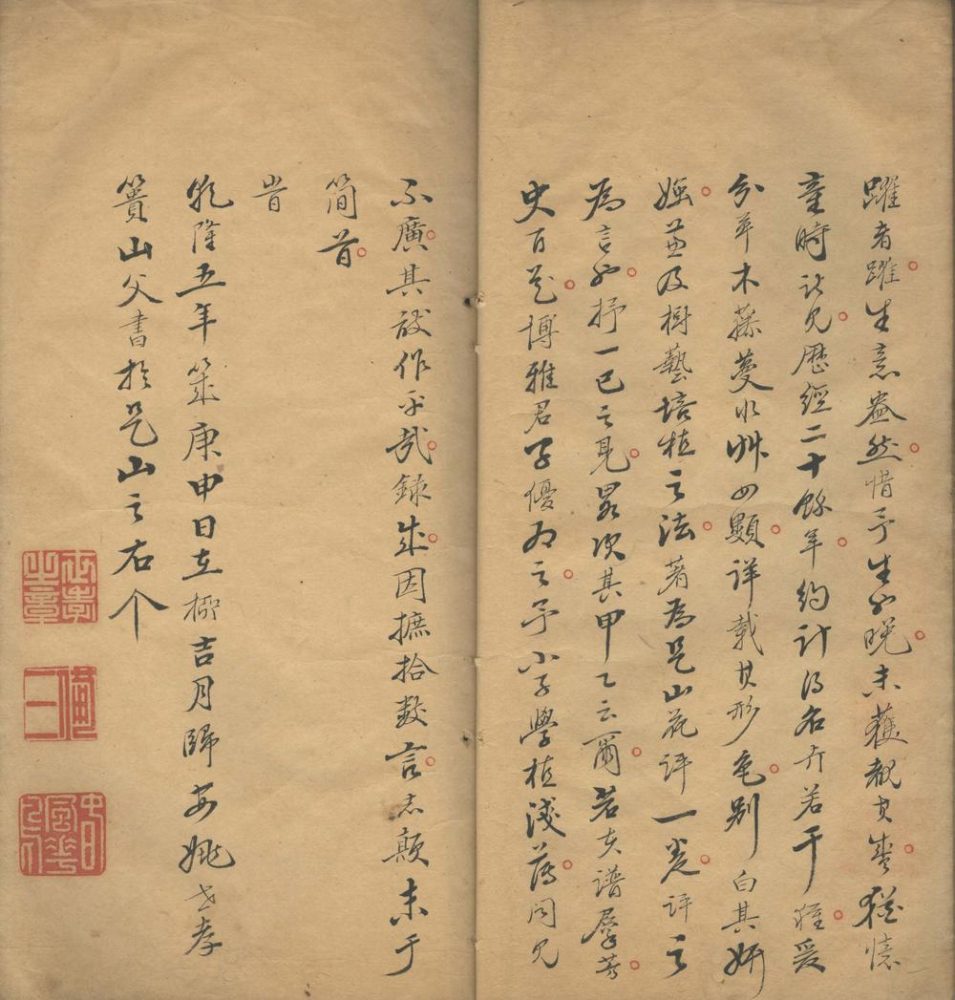 躍者躍生意盎然惜予生也晚未獲覩其盛猶憶
童時所見歷經二十餘年約計得名卉若干種爰
分草木藤蔓水艸四類詳載其形色别白其妍
媸並及樹藝培植之法著為是山花評一卷評之
為言也抒一己之見畧次其甲乙云爾若夫譜羣芳
史百花博雅君子優為之予小子學植淺薄聞見
不廣其敢作乎哉錄成因摭拾數言志顛末于
簡首
旹
乾隆五年歲庚申日在桞吉月歸安姚世孝
簣山父書於是山之右个